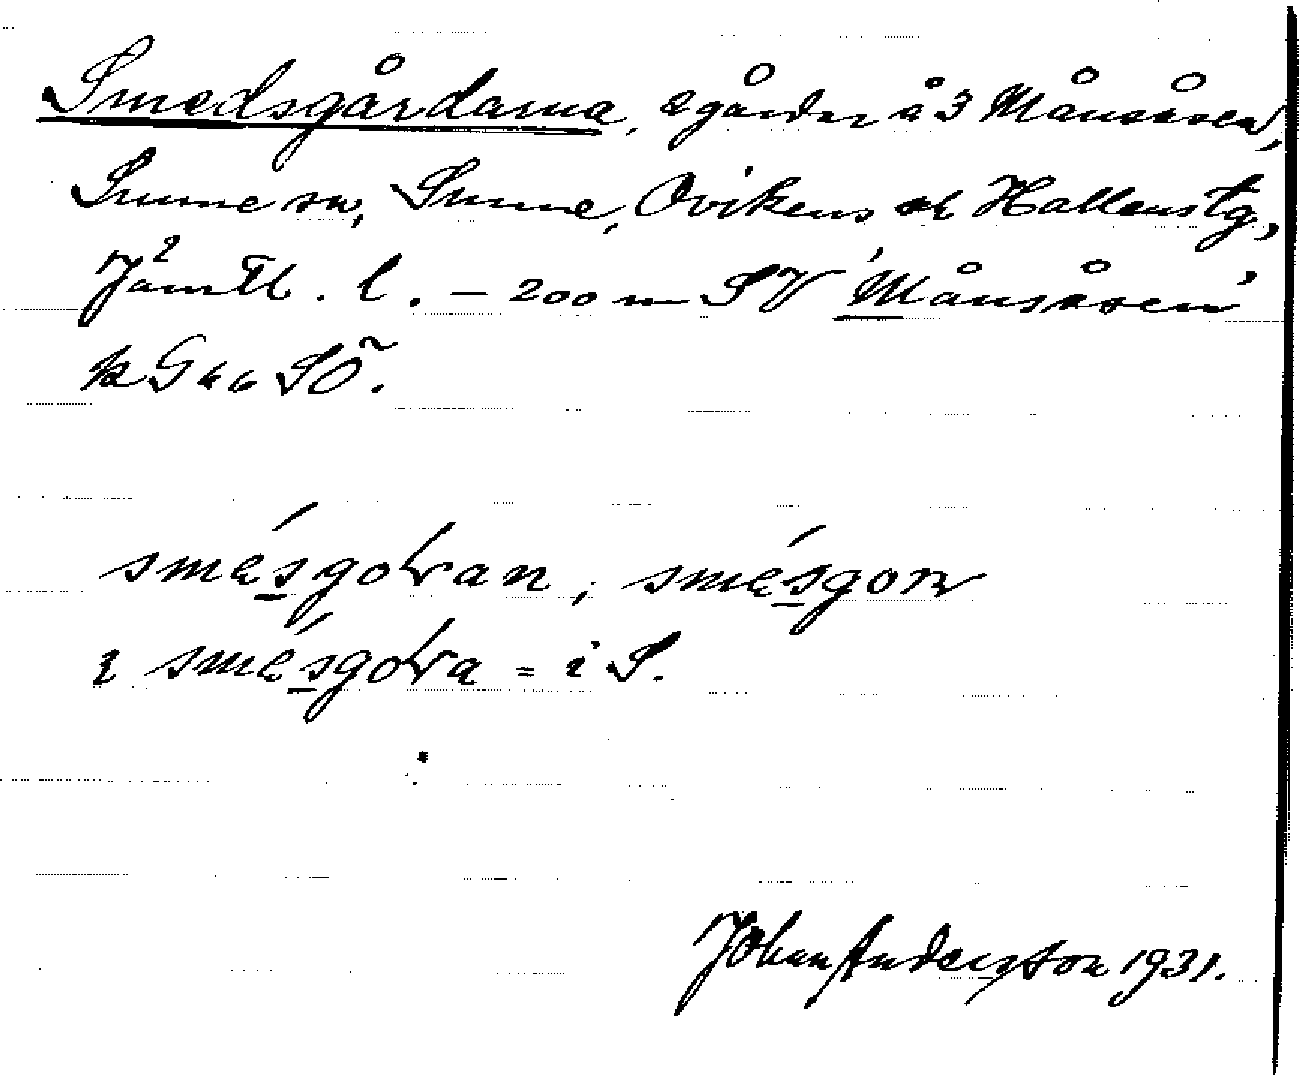 Smedsgårdarna, 2 gårdar å 3 Månsåsen,
Sunne sn, Sunne, Ovikens och Hallens tg,
Jämtl. l. – 200 m SV Månsåsen
på G SÖ.
smésgoɽan, smésgoɽ
i smésgoɽa = i S.
Johan Andersson 1931.